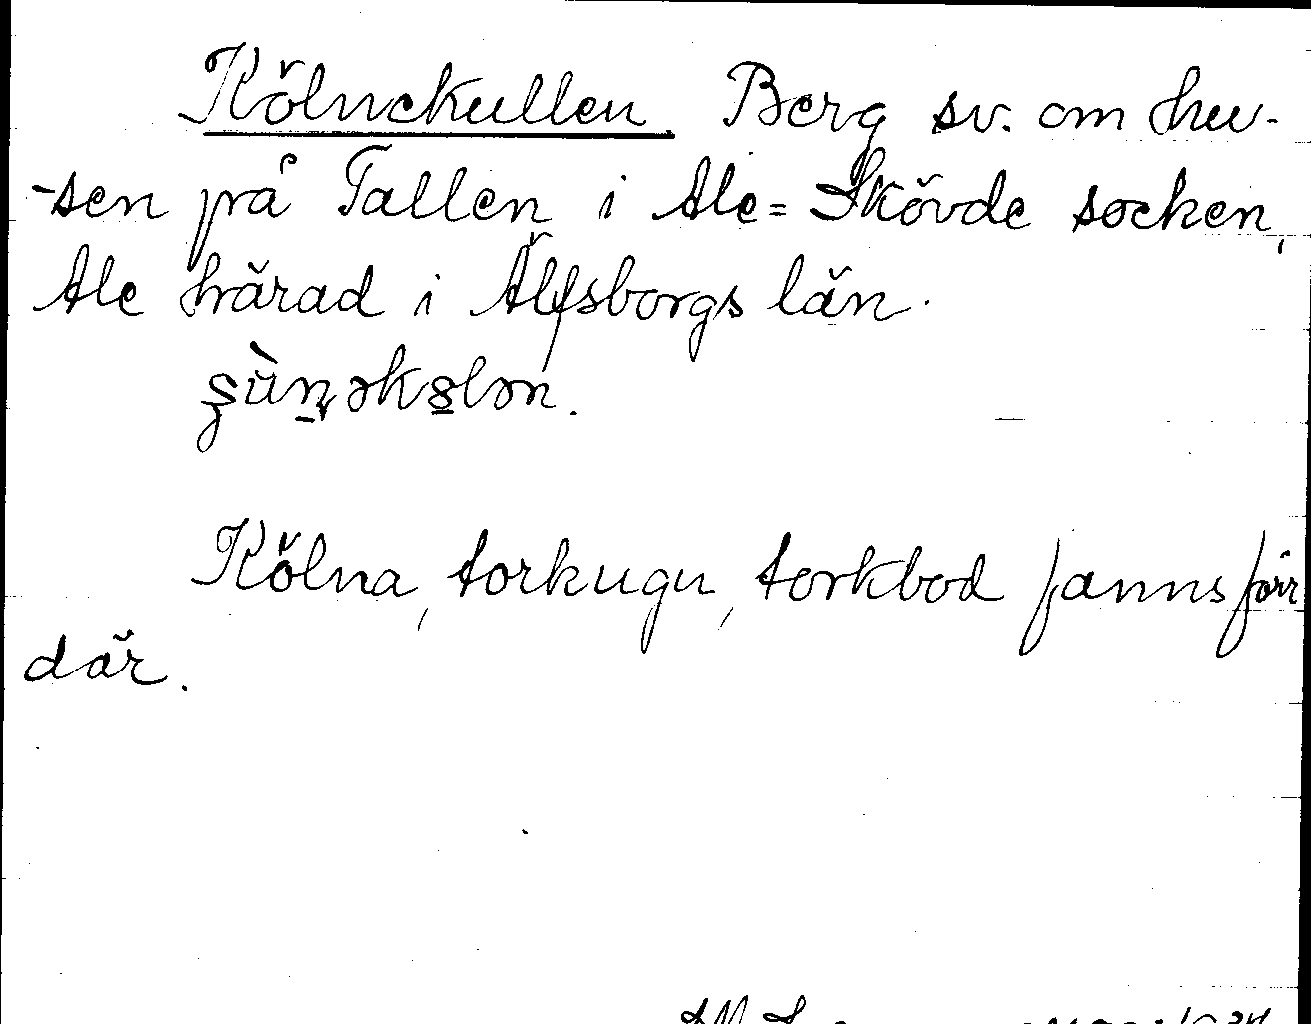 Kölnekullen Berg sv. om hu-
-sen på Tallen i Ale=Skövde socken,
Ale härad i Älfsborgs län.
Kölna, torkugn, torkbod fanns förr
där.